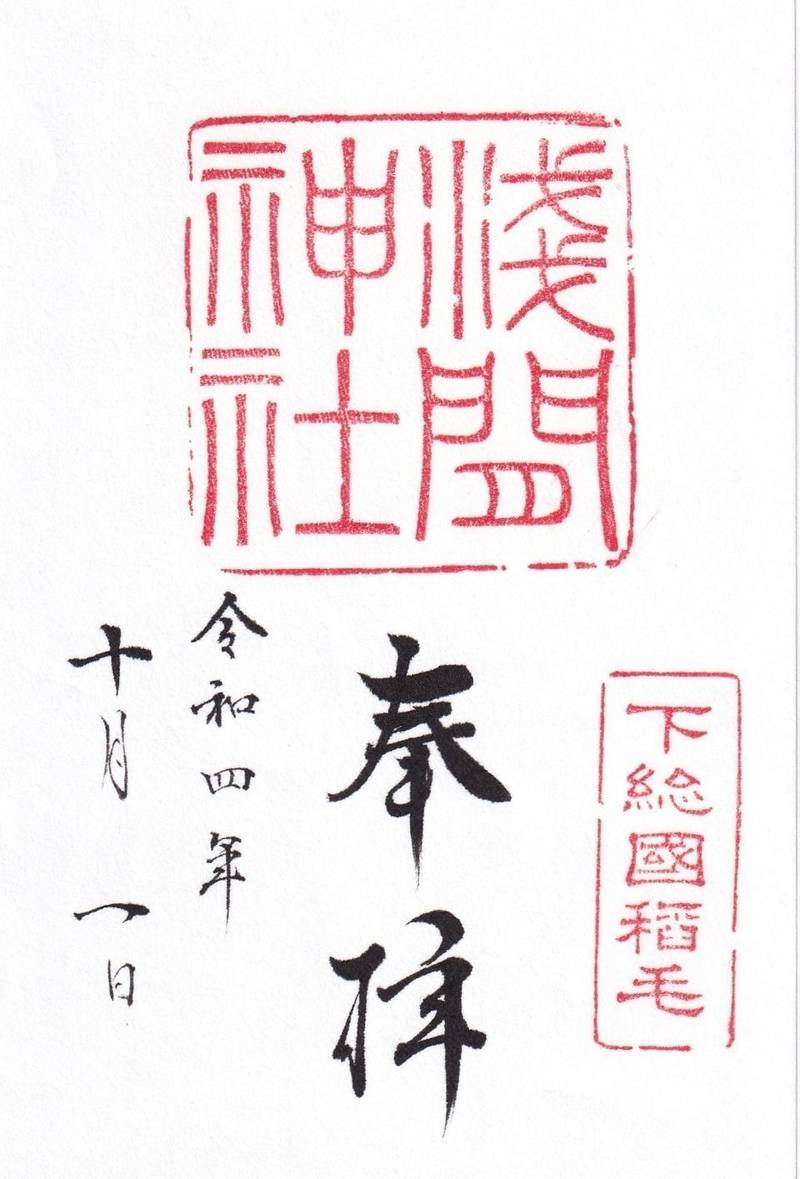 淺間
神社
下総國稲毛
奉拝
令和四年
十月一日